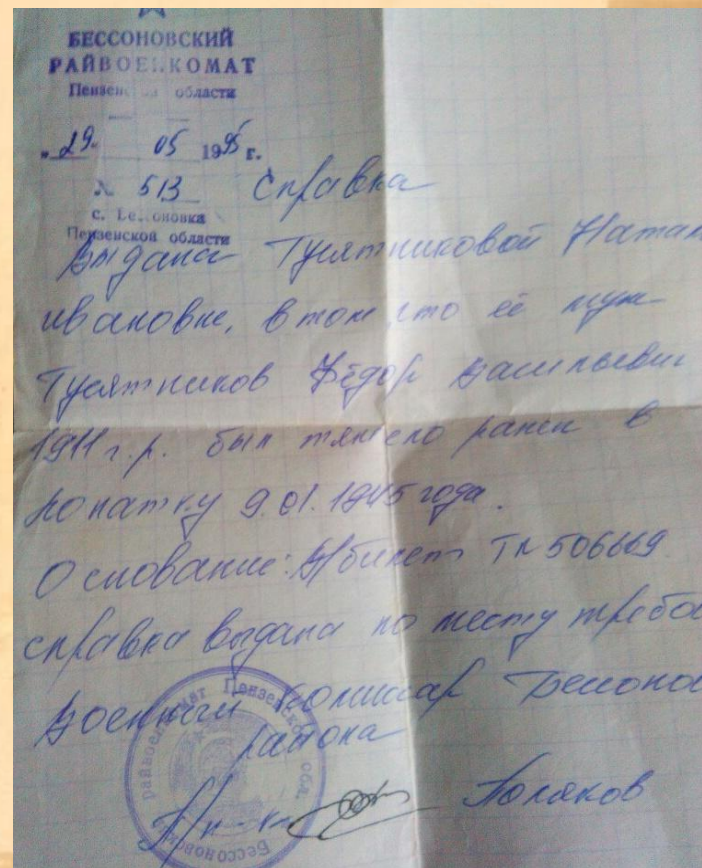 БЕССОНОВСКИЙ
РАЙВОЕНКОМАТ
Пензенской области
"29" 05 1995 г.
№ 513
с. Бессоновка
Пензенской области
Справка
Выдана Гусятниковой Натал
ивановне, в том что её муж
Гусятников Фёдор Васильевич
1911 г.р. был тяжело ранен в
лопатку 9.01.1945 года.
Основание: В/билет ТП 506669
справка выдана по месту требов
Военный комиссар Бессонов
района
П/п-к Поляков
райвоенкомат Пензенской обл.
Бессоновский